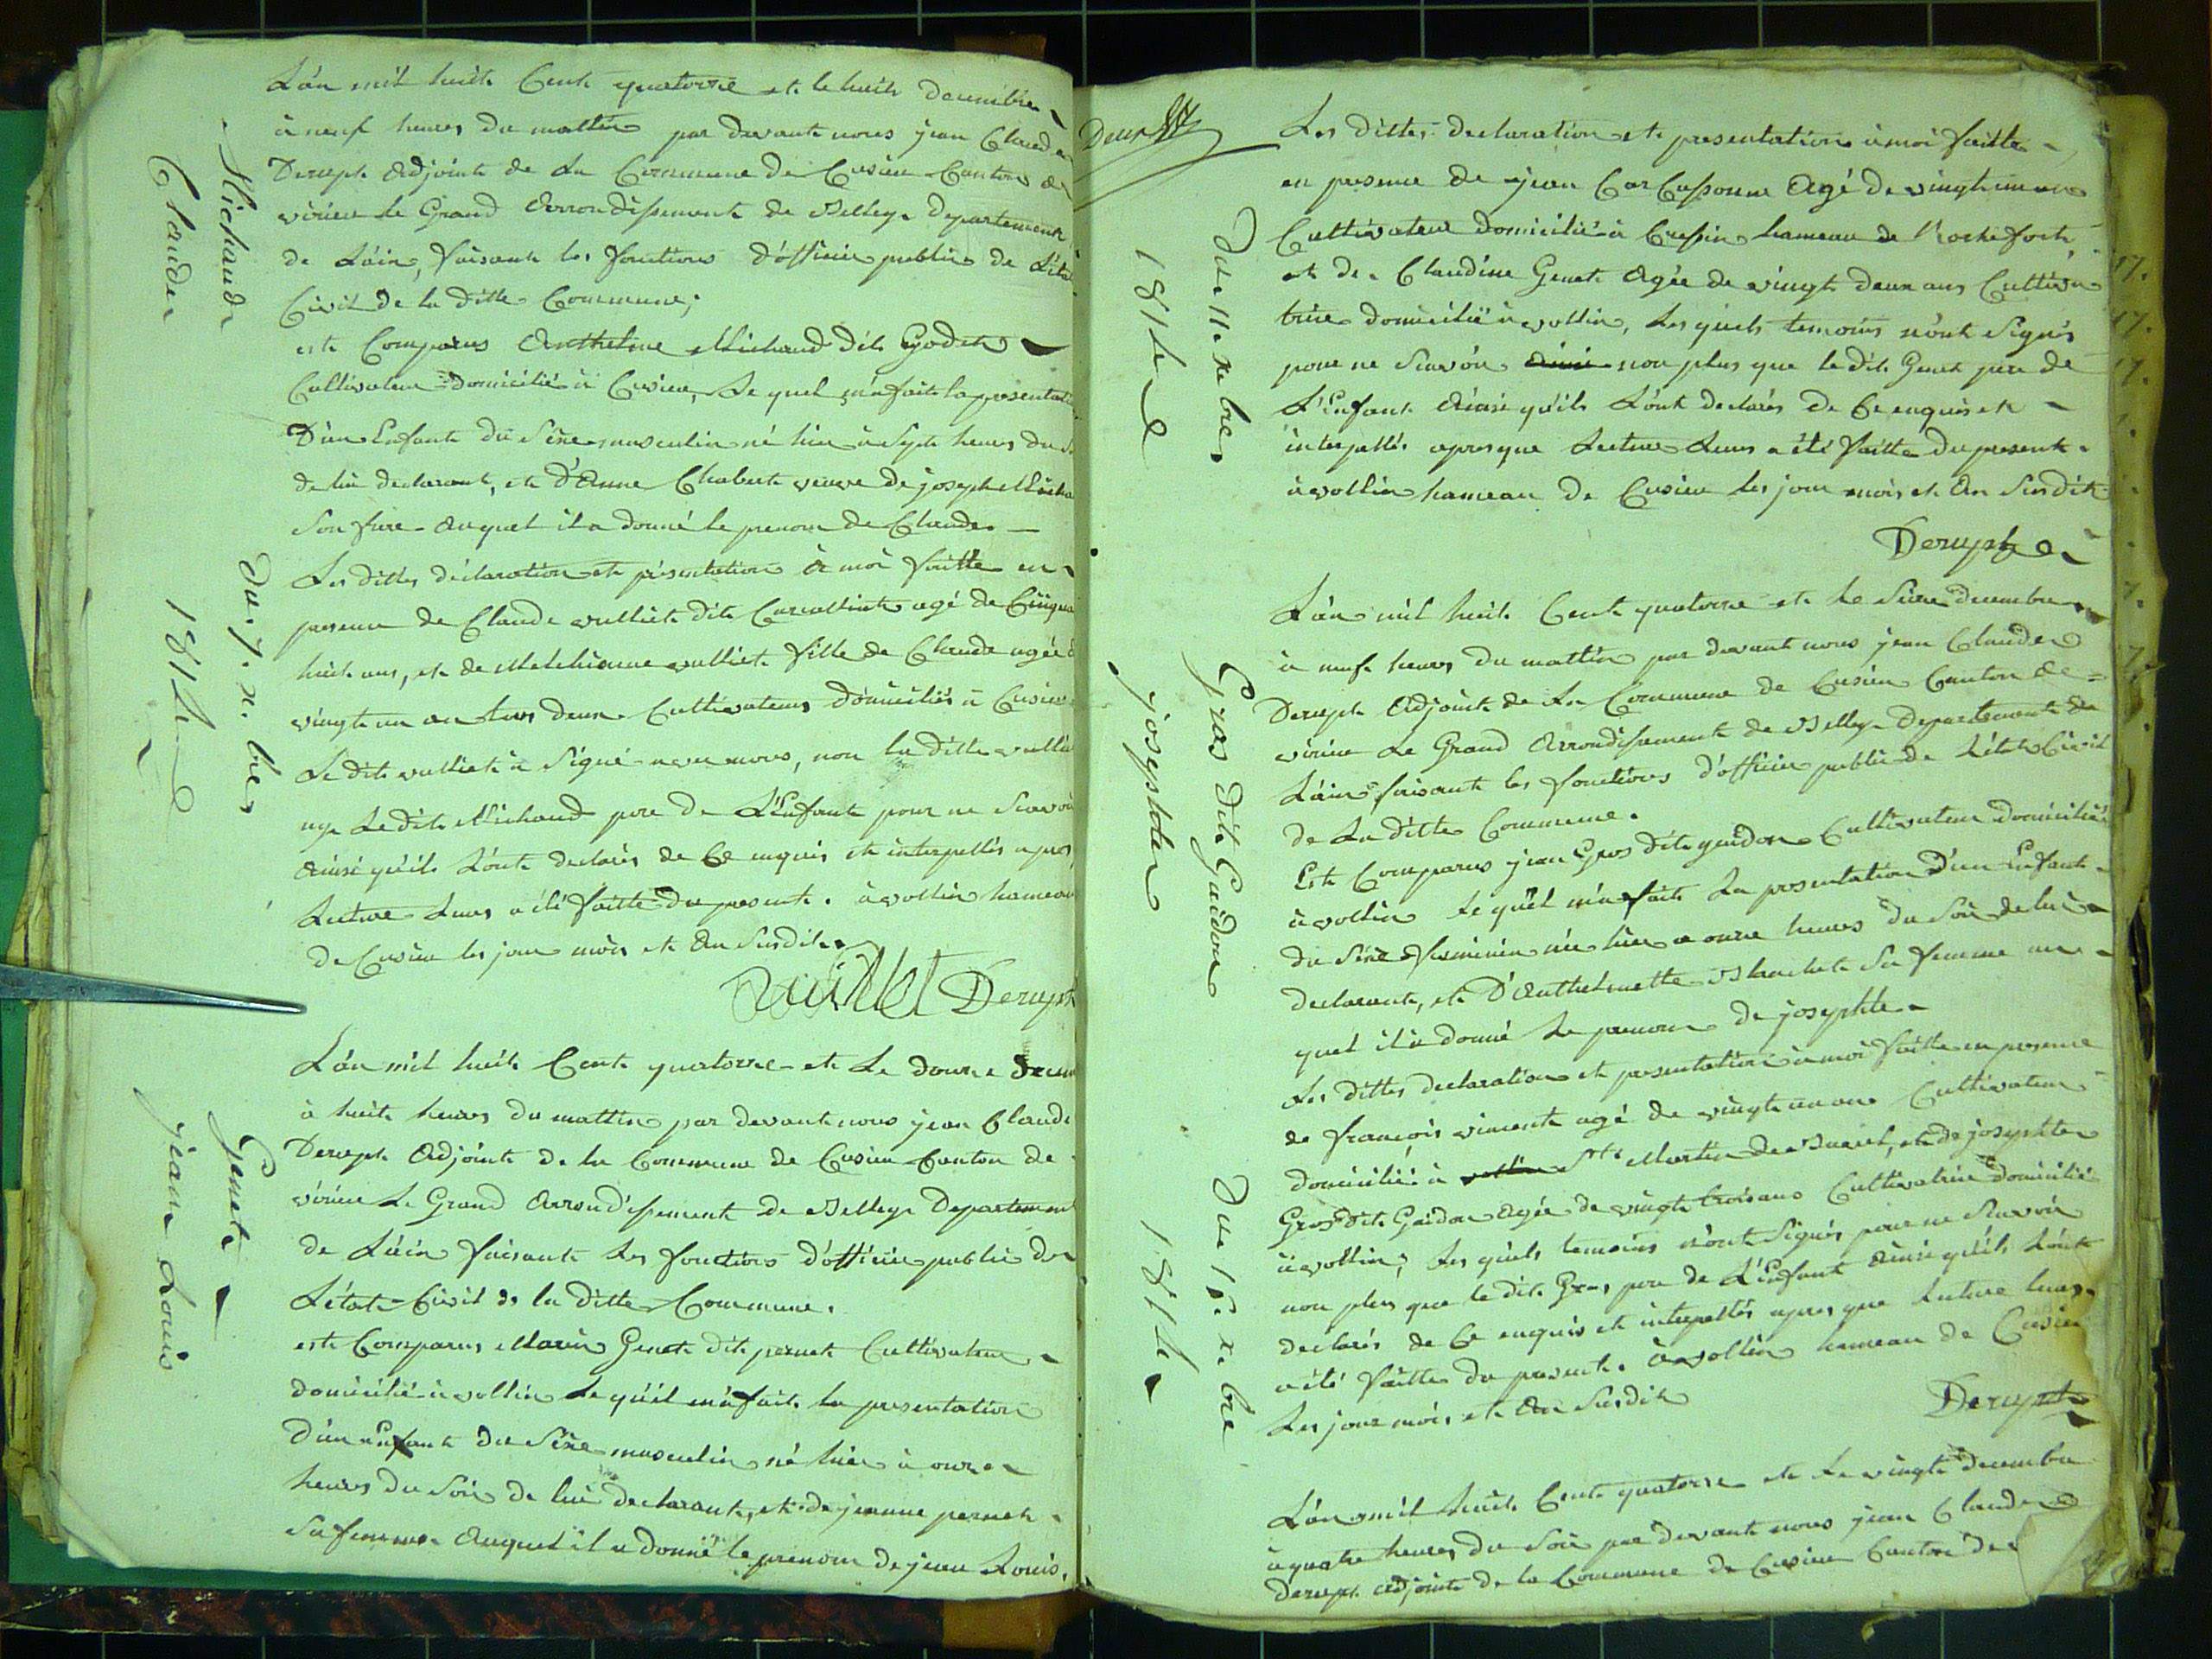 L'an mil huit Cent quatorze et le huit decembre
à neuf heures du mattin par devant nous jean Claude
Derupt Adjoint de La Commune de Cusieu Canton de
virieu le Grand Arrondissement de Belley Departement
de L'ain, faisant les fonctions d'officier public de L'état
Civil de la ditte Commune;
est Comparus Anthelme Michaud dit Godet
Cultivateur domicilié à Cusieu, Le quel m'a fait la presentati
D'un Enfant du Séxe masculin né hier à Sept heures du S
de lui declarant, et d'Anne Chabert veuve de joseph Micha
Son frere auquel il a donné le prenom de Claude
Les dittes déclaration et présentation à moi faitte en
presence de Claude vulliet dit agé de Cinqua
huit ans, et de Melchionne vulliet fille de Claude agée d
vingt un an tous deux Cultivateurs domiciliés à Cusieu
Le dit vulliet à Signé avec nous, non la ditte vullie
ny Le dit Michaud pere de L'Enfant pour ne Scavoi
Ainsi qu'ils L'ont declarés de Ce enquis et interpellés apres
Lecture Leurs a été faitte du present. à vollin hameau
de Cusieu les jour mois et An Susdit.
vuilliet Derupt
Michaud
Claude
Du. 7. x. bre
1814
L'an mil huit Cent quatorze et Le douze decem
à huit heures du mattin par devant nous jean Claude
Derupt Adjoint de la Commune de Cusieu Canton de
virieu Le Grand Arrondissement de Belley Departement
de L'ain faisant Les fonctions d'officier public de
L'état Civil de la ditte Commune.
est Comparus Marin Genet dit pernet Cultivateur
domicilié à vollin Le qu'el m'a fait la presentation
d'un Enfant du Séxe masculin né hier à onze
heures du Soir de lui declarant, et de jeanne pernet
Sa femme Auquel il a donné le prenom de jean Louis.
Genet
jean Louis
Deux
Les dittes declaration et presentation à moi faitte
en presence de jean Carcassonne Agé de vingt un an
Cultivateur domicilié à Cressin hameau de Rochefort,
et de Claudine Genet Agée de vingt deux ans Cultiva
trice domicilié à vollin, Les quels temoins n'ont Signés
pour ne Scavoir non plus que le dit Genet pere de
L'Enfant Ainsi qu'ils L'ont declarés de Ce enquis et
interpellés apres que Lecture Leurs a été faitte du present
à vollin hameau de Cusieu les jour mois et An Susdit
Derupt
Du 11. xe bre
1814
L'an mil huit Cent quatorze et Le Seize decembre
à neuf heures du mattin par devant nous jean Claude
Derupt Adjoint de La Commune de Cusieu Canton de
virieu Le Grand Arrondissement de Belley Departement de
L'ain faisant les fonctions d'officier public de L'état Civil
de La ditte Commune.
Est Comparus jean Gros dit gaidon Cultivateur domicilié
à vollin Le qu'el m'a fait La presentation d'un Enfant
du Séxe feminin née hier a onze heures du Soir de lui
declarant, et D'Anthelmette Brachet Sa femme au
quel il à donné Le prenom de josephte.
Les dittes declaration et presentation à moi faitte en presence
de françois viment agé de vingt un ans Cultivateur
domicilié à vollin St. Martin de Bavel, et de josephte
Gros dit Gaidon agée de vingt trois ans Cultivatrice domicilié
à vollin, Les quels temoins n'ont Signés pour ne Scavoir
non plus que le dit Gros pere de L'Enfant Ainsi qu'ils L'ont
declarés de Ce enquis et interpellés apres que Lecture leurs
a été faitte du present. à vollin hameau de Cusieu
Les jour mois et An Susdit
Derupt
Gros dit Gaidon
josephte
Du 15. x. bre
1814
L'an mil huit Cent quatorze et Le vingt decembre
à quatre heures du Soir par devant nous jean Claude
Derupt adjoint de la Commune de Cusieu Canton de